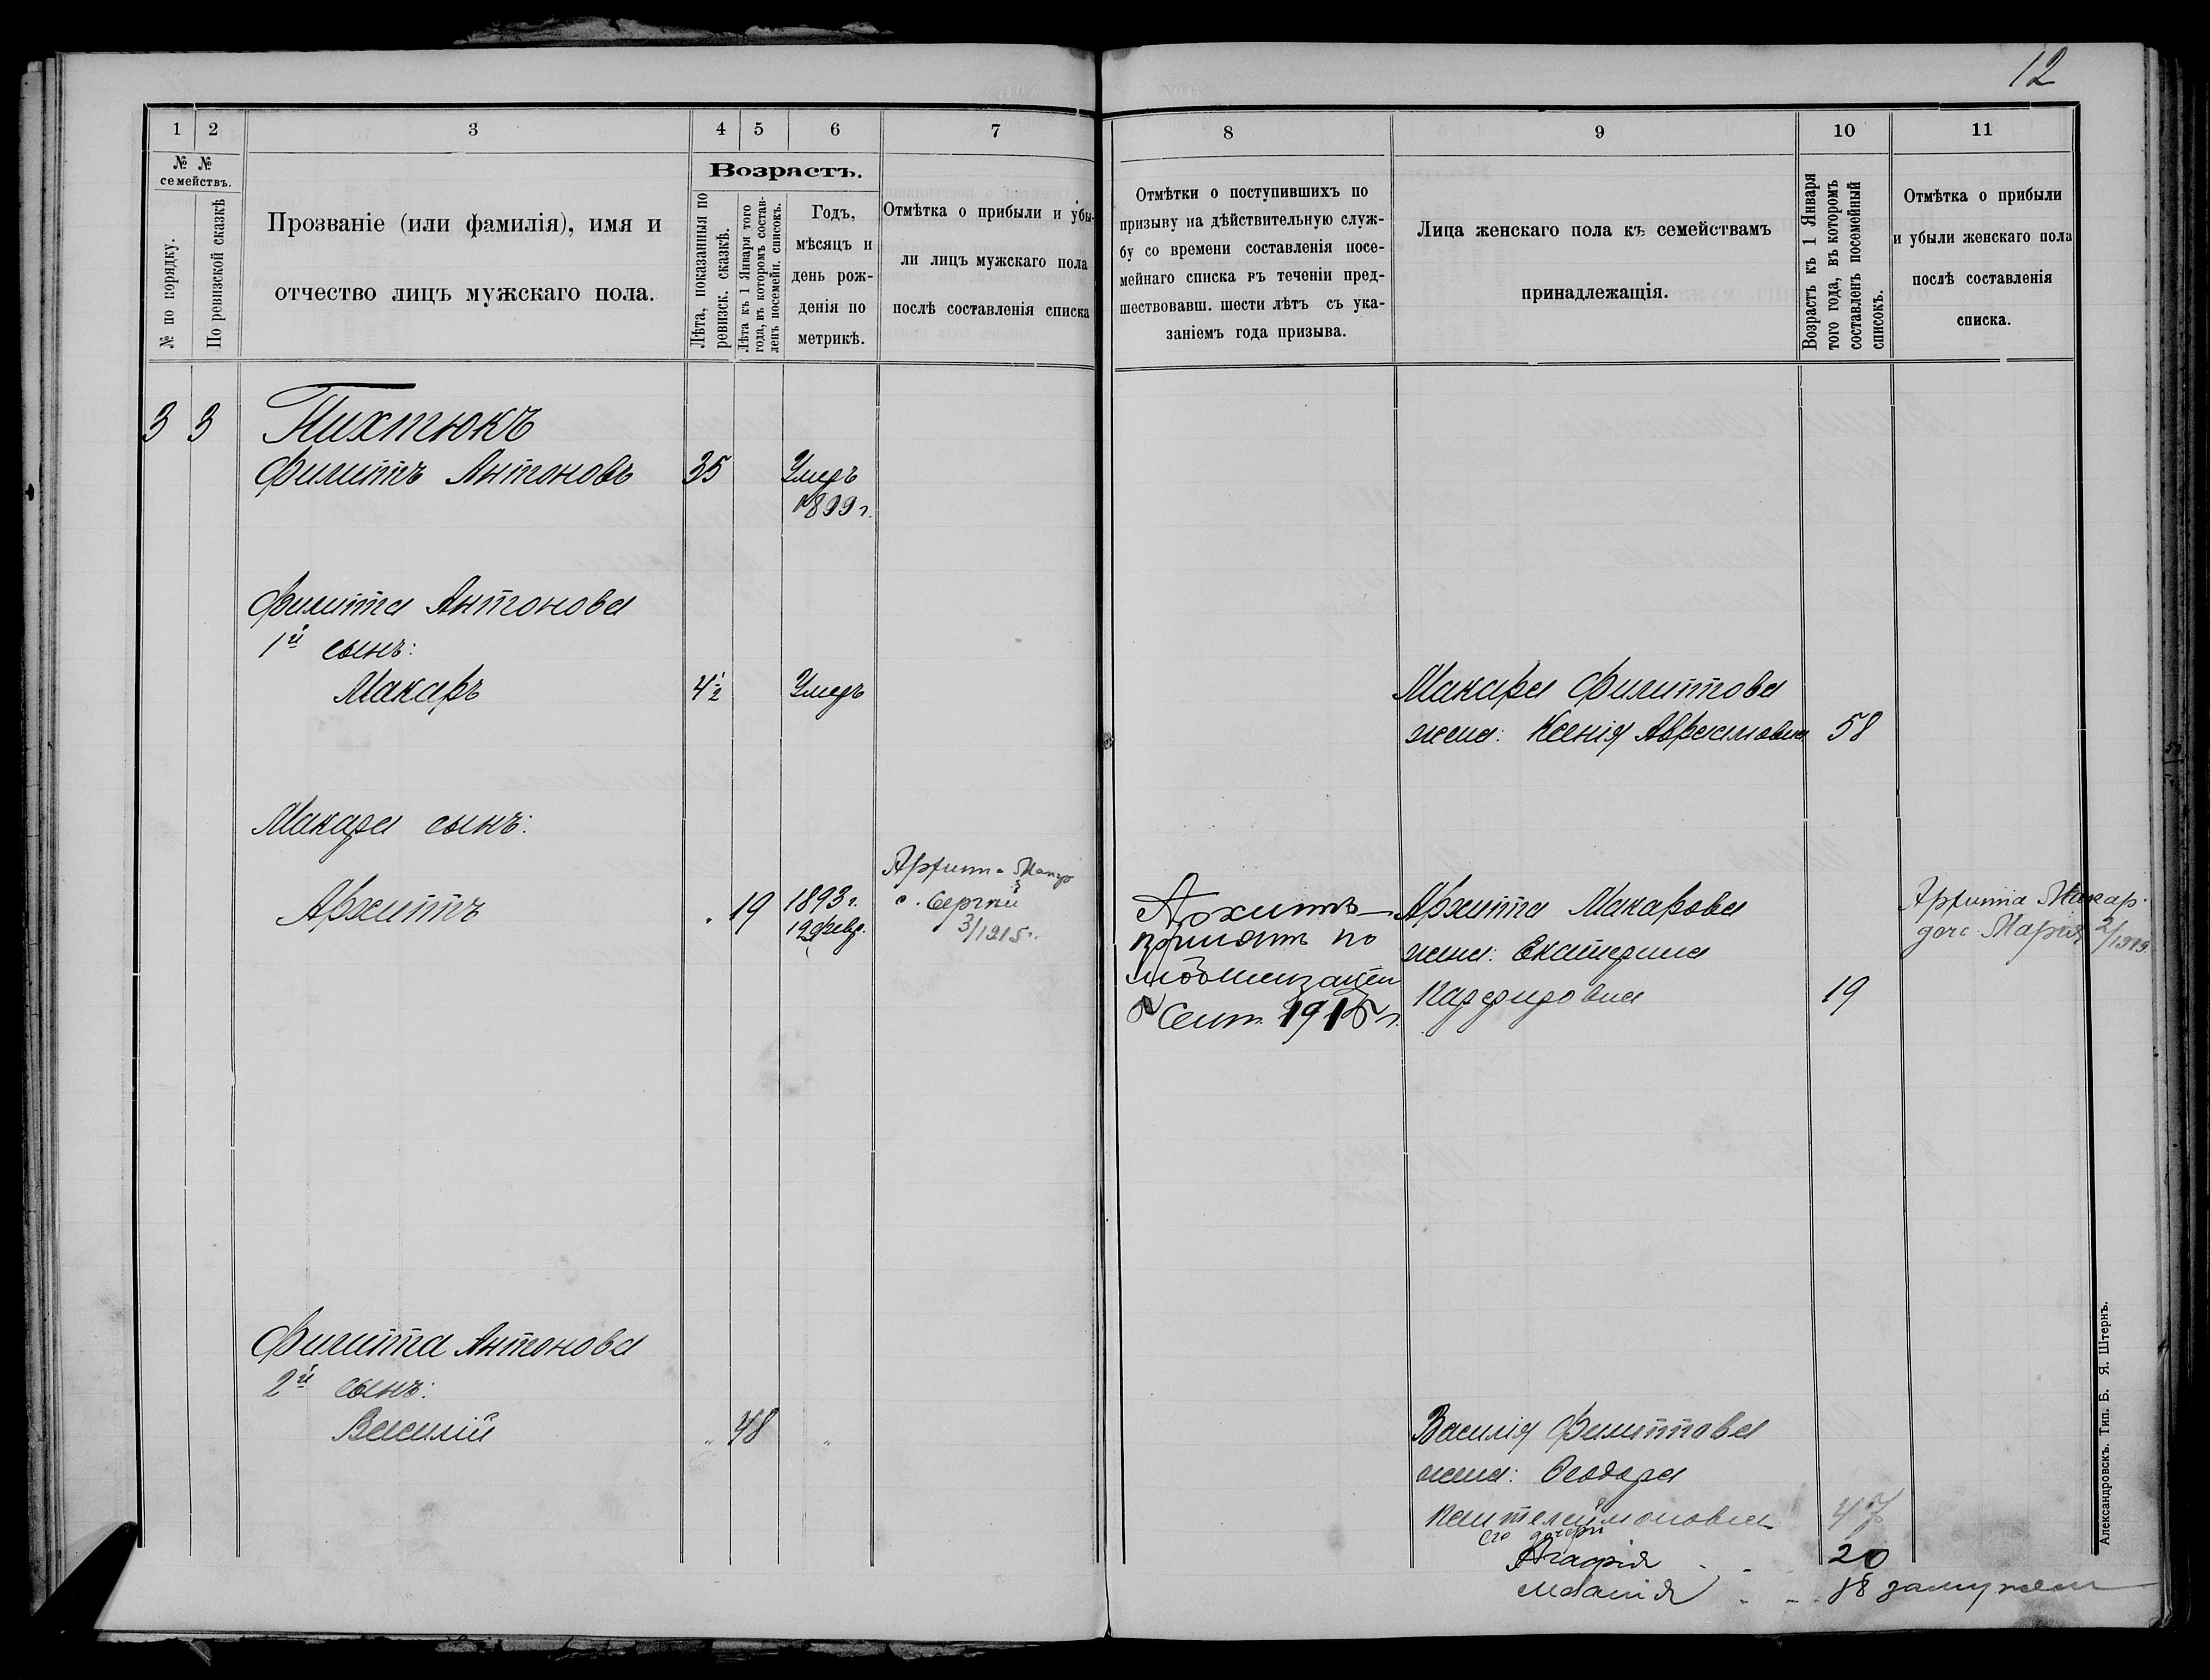 12
1 2 3 4 5 6 7
№ № семействъ.
№ по порядку.
По ревизской сказкѣ
Прозваніе (или фамилія), имя и
отчество лицъ мужскаго пола.
Возрастъ.
Лѣта, показанныя по
ревизск. сказкѣ.
Лѣта къ 1 Января того
года, въ которомъ состав-
ленъ посемейн. списокъ.
Годъ,
мѣсяцъ и
день рож-
денія по
метрикѣ.
Отмѣтка о прибыли и убы-
ли лицъ мужскаго пола
послѣ составленія списка
3 3 Пихтюкъ
Филиппъ Антоновъ 35 Умеръ
1899 г.
Филиппа Антонова
1й сынъ:
Макаръ 4½ Умеръ
Макара сынъ:
Архиппъ " 19 1893 г.
19 февр.
с. Сергѣй
3/1915 г.
Филиппа Антонова
2й сынъ:
Василій " 48 "
8 9 10 11
Отмѣтки о поступившихъ по
призыву на дѣйствительную служ-
бу со времени составленія посе-
мейнаго списка въ теченіи пред-
шествовавш. шести лѣтъ съ ука-
заніемъ года призыва.
Лица женскаго пола къ семействамъ
принадлежащія.
Возрастъ къ 1 Января
того года, въ которомъ
составленъ посемейный
списокъ.
Отмѣтка о прибыли
и убыли женскаго пола
послѣ составленія
списка.
Макара Филиппова
жена: Ксенія Авраамовна 58
Архиппъ
принятъ по
мобилизаціи
Сент. 1915 г.
Архиппа Макарова
жена: Екатерина
Парфировна 19
Архиппа Макар.
дочь Марія 2/1913
Василія Филиппова
жена: Феодора
Пантелеймоновна 47
Его дочери
Агафія 20
Меланія 18 замужем
Александровскъ. Тип. Б. Я. Штернъ.